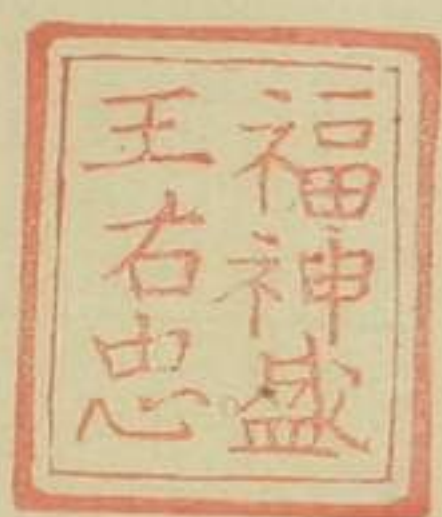 福神盛
王右忠